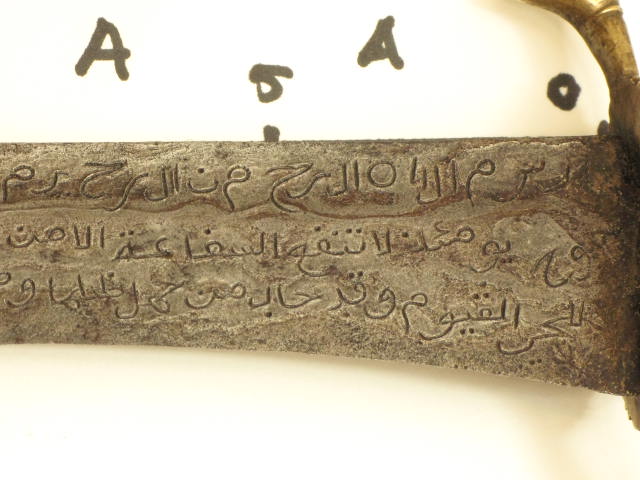 A A
5 0
بسم الله الرحمن الرحيم
يومئذ لا تنفع الشفاعة الا من
للحي القيوم وقد خاب من حمل ظلما